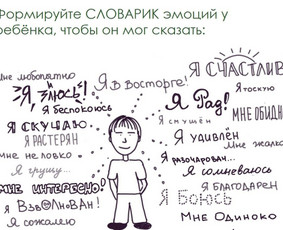 Формируйте СЛОВАРИК эмоций у
ребёнка, чтобы он мог сказать:
Мне любопытно
Я В Восторге!
Я СЧАСТЛИВ
Я, ЗЛЮСЬ!
Я тоскую
Я беспокоюсь
Я Рад!
МНЕ ОБИДН
Я СКУЧАЮ
Я смущён
Я РАСТЕРЯН
Я УДИВЛЁН
Мне жалко
мне неловко
Я РАЗОЧАРОВАН...
Я грущу...
Я сомневаюсь
МНЕ ИНТЕРЕСНО!
Я БЛАГОДАРЕН
Я ВзВОЛНоВАН!
Я Боюсь
Я сожалею
Мне Одиноко